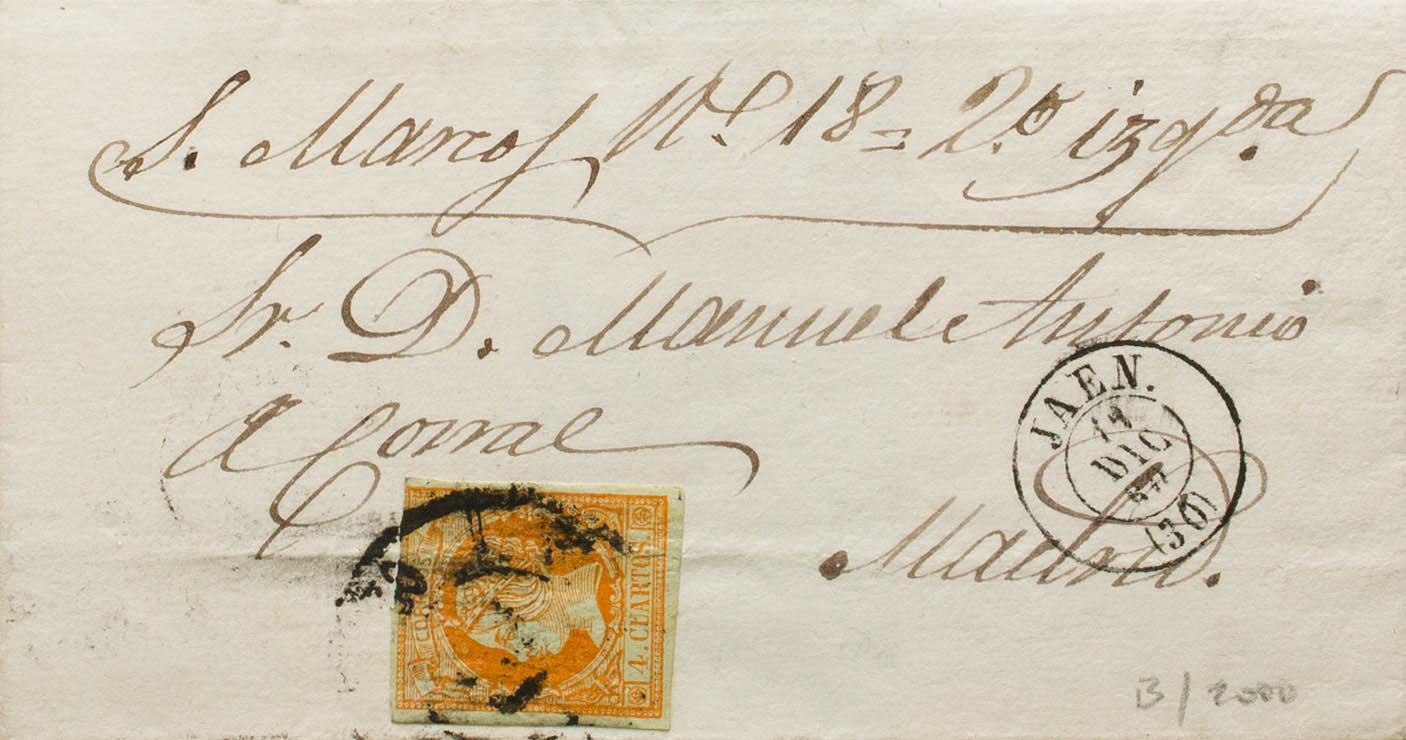 S. Marcos Nº 18 = 2º izqda
Sr. D. Manuel Antonio
A Corral
Madrid.
JAEN.
DIC
(30)
4 CUARTOS
B/2000